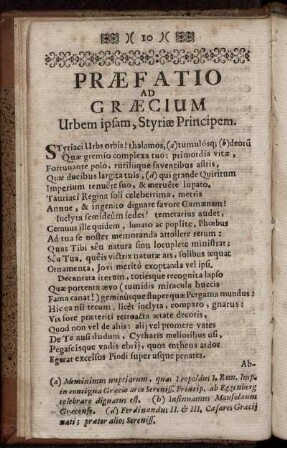 )( 10 )(
PRÆFATIO
AD
GRÆCIUM
Urbem ipsam, Styriæ Principem.
STyriaci Urbs orbis! thalamos, (a) tumulósq; (b) deorũ
Quæ gremio complexa tuo: primordia vitæ,
Fortunante polo, rutilisque faventibus astris,
Quæ ducibus largita tuis, (d) qui grande Quiritum
Imperium tenuêre suo, & meruêre lupato,
Tauriaci Regina soli celeberrima, metris
Annue, & ingenito dignare favore Camœnam!
Inclyta sem̃ideûm sedes! temerarius audet,
Cernuus ille quidem, lunato ac poplite, Phœbus
Ad tua se noster memoranda attollere rerum:
Quas Tibi seu natura sinu locuplete ministrat;
Seu Tua, quêis victrix naturæ ars, solibus æquat
Ornamenta, Jovi meritò exoptanda vel ipsi.
Decantata iterum, totiesque recognita lapso
Quæ portenta ævo (tumidis miracula buccis
Fama canat!) geminusque stuperque Pergama mundus:
Hicea nil tecum, licèt inclyta, comparo, gnarus:
Vix fore præteriti retroacta ætate decoris,
Quod non vel de abis: ali; vel promere vates
De Te ausi dudum, Cytharis melioribus usi,
Pegaseisque vadis ebrij, quos entheus ardor
Egerat excelsos Pindi super usque penates.
Ab-
(a) Meminimus nuptiarum, quas Leopoldus I. Rom. Imp.
in contigua Græcio arce Sereniss. Princip. ab Eggenberg
celebrare dignatus est. (b) Insinuamus Mausolæum
Græcense. (d) Ferdinandus II. & III. Cæsares Græcij
nati; præter alios Sereniss.